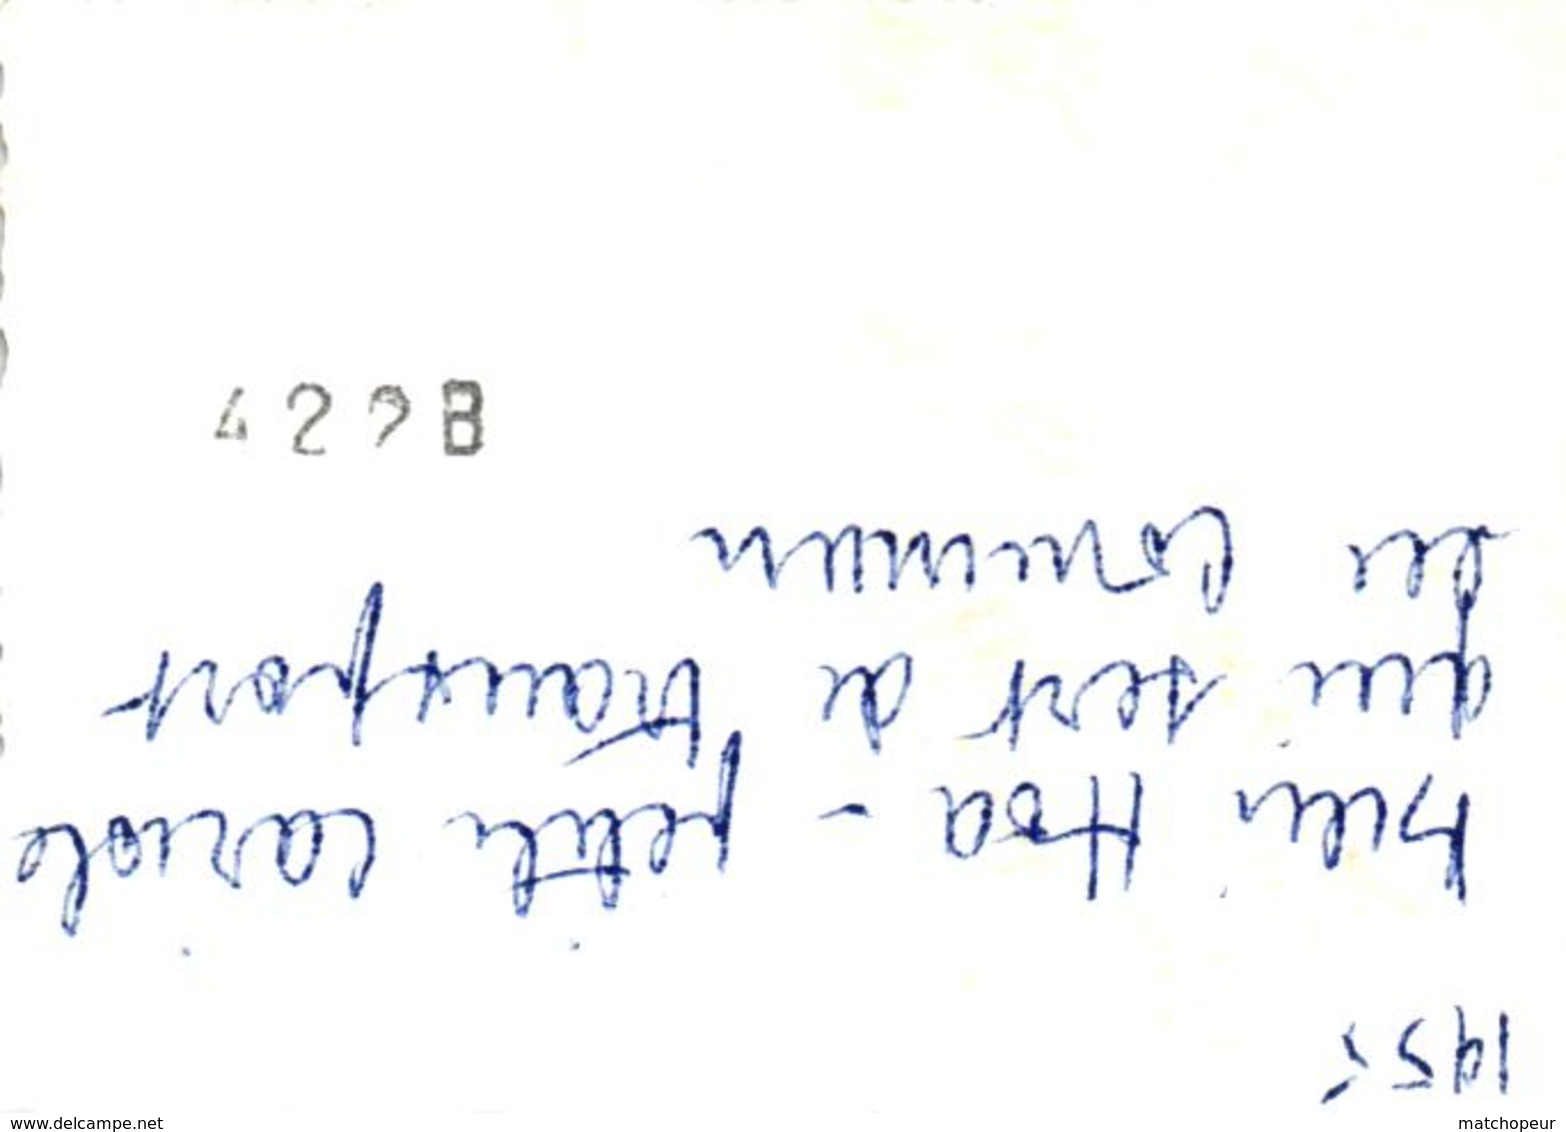 1955
Bien Hoa - petite cariole
qui sert de transport
en commun
422B
www.delcampe.net
matchopeur